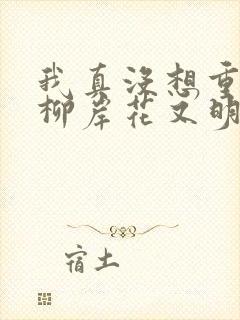 我真没想重
柳岸花又明
宿土